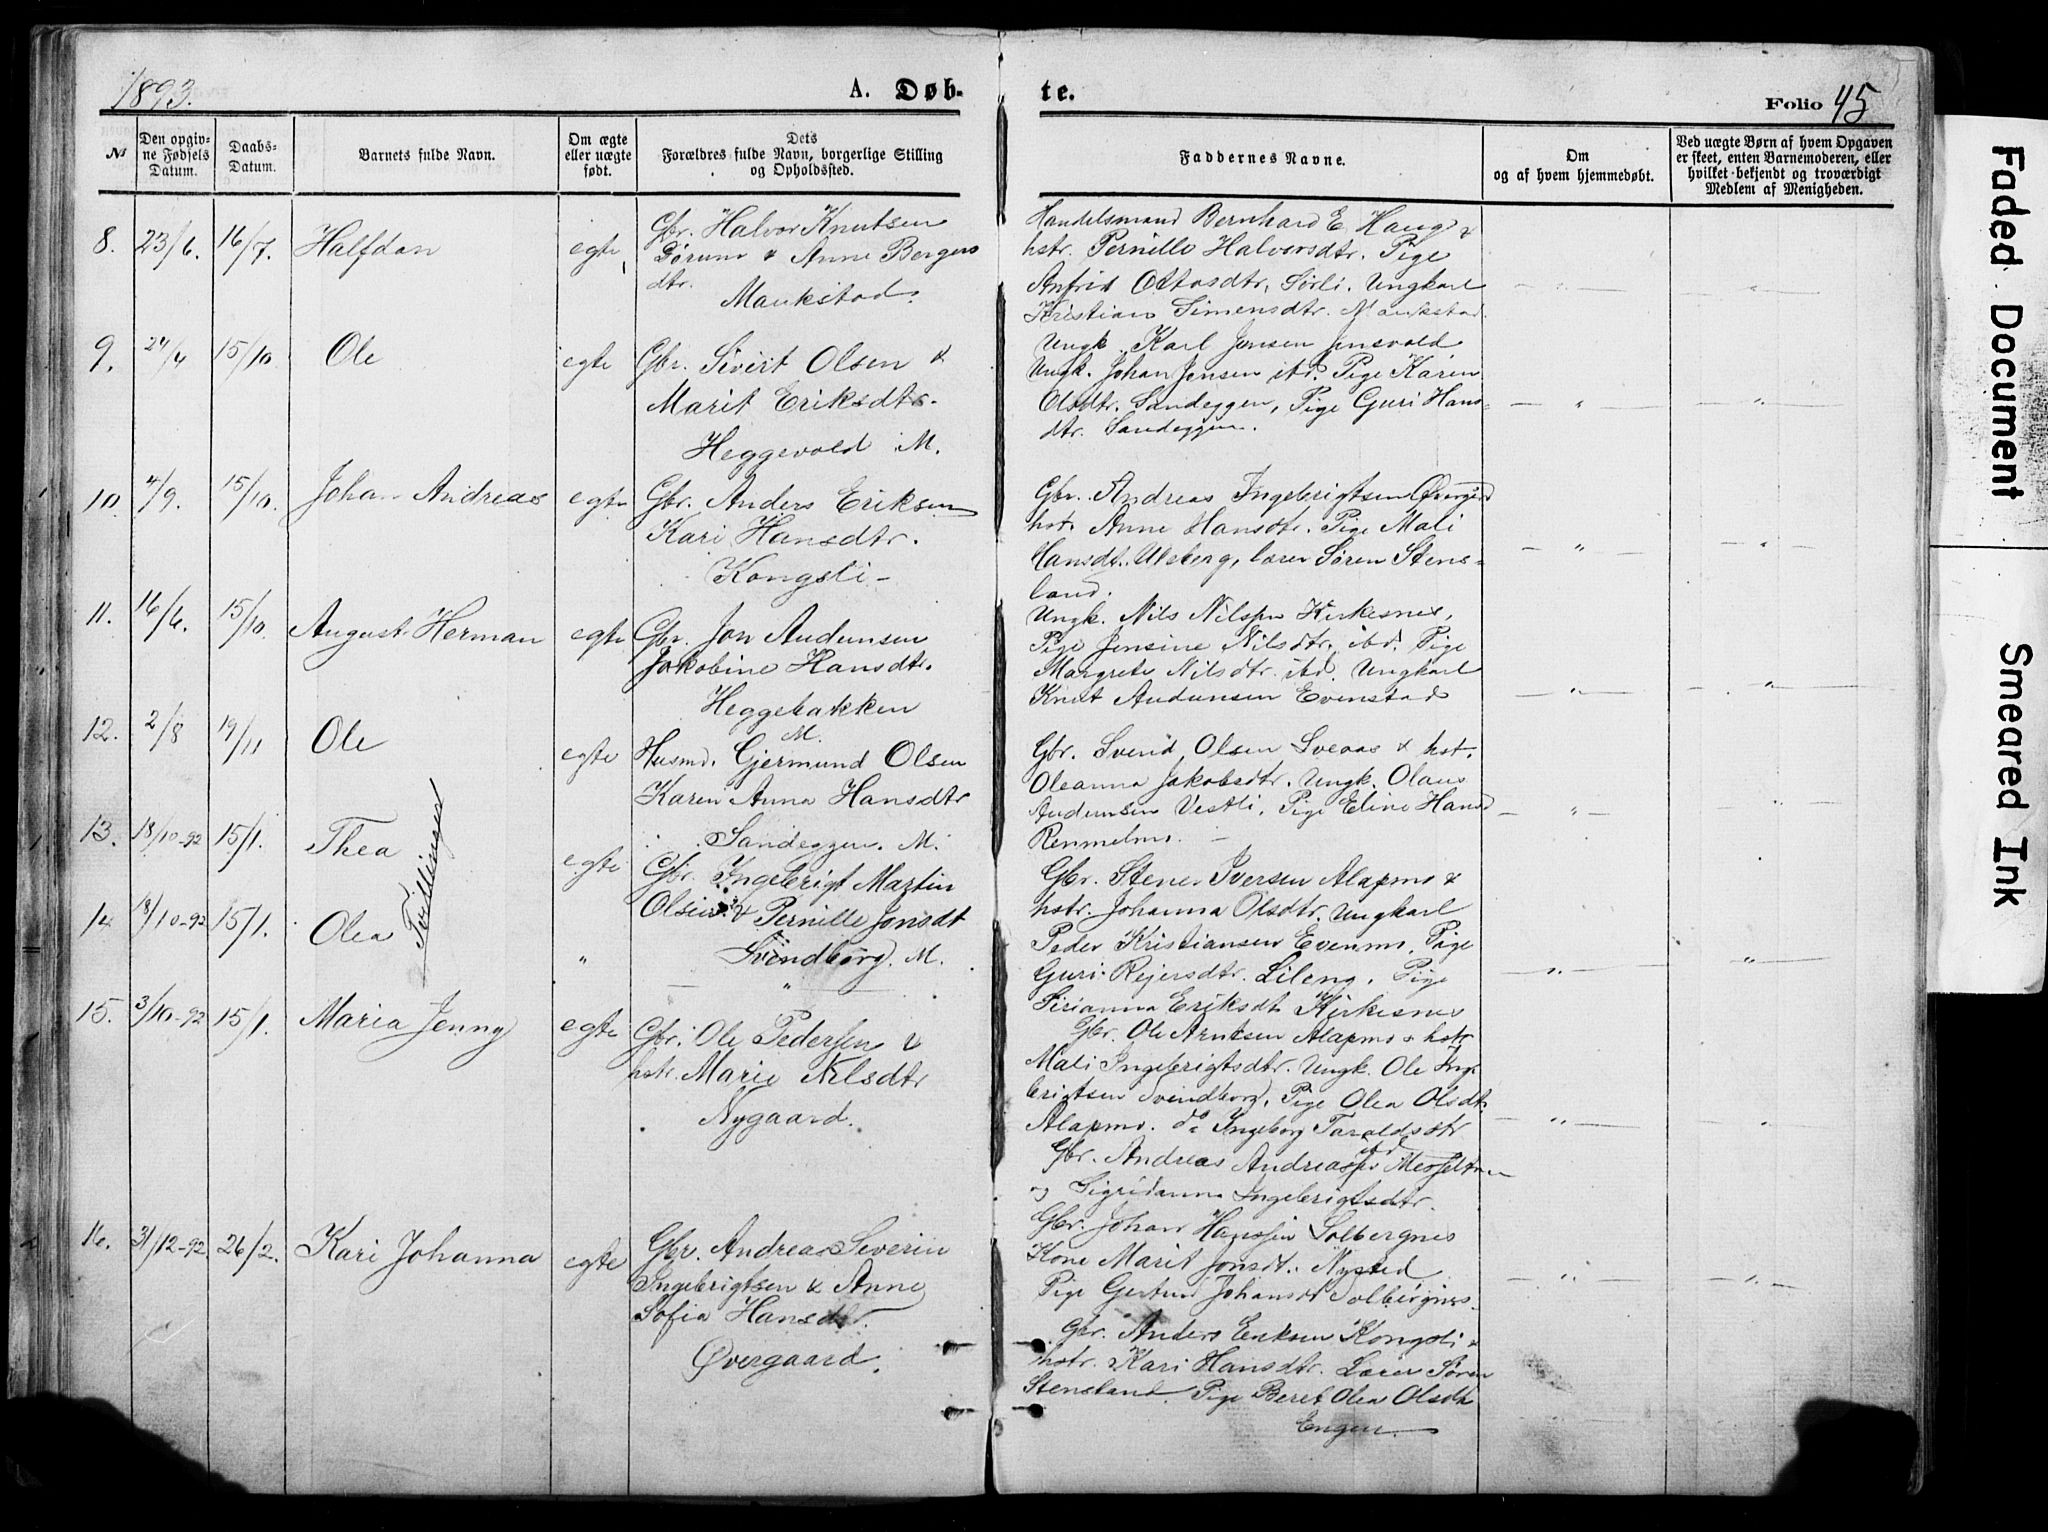 1893.
A. Døb-
te.
Folio 45
No
Den opgiv-
ne Fødsels
Datum.
Daabs-
Datum.
Barnets fulde Navn.
Om ægte
eller uægte
født.
Dets
Forældres fulde Navn, borgerlige Stilling
og Opholdssted.
Faddernes Navne.
Om
og af hvem hjemmedøbt.
Ved uægte Børn af hvem Opgaven
er skeet, enten Barnemoderen, eller
hvilket bekjendt og troværdigt
Medlem af Menigheden.
8. 23/6. 16/7. Halfdan egte
Gbr. Halvor Knutsen
Børum & Anne Bergers
dtr.
Maukstad.
Handelsmand Bernhard E. Haug &
hstr. Pernille Halvorsdtr. Pige
Anfrid Ottosdtr. Sørli. Ungkarl
Kristian Simensdtr. Maukstad.
9. 24/4 15/10. Ole egte
Gbr. Sivert Olsen &
Marit Eriksdtr.
Heggevold M.
Ungk. Karl Jensen
Ungk. Johan Jensen ibd. Pige Karen
Olsdtr. Sandeggen, Pige Guri Hans-
dtr. Sandeggen.
10. 4/9. 15/10. Johan Andreas egte
Gbr. Anders Eriksen
Kari Hansdtr.
Kongsli -
Gbr. Andreas Ingebrigtsen Øvergård
hstr. Anne Hansdtr. Pige Mali
Hansdt. Ulsberg, Lærer Søren Stens-
land.
11. 16/6. 15/10. August Herman egte
Gbr. Jon Audunsen
Jakobine Hansdtr.
Heggebakken
M.
Ungk. Nils Nilssen Kirkesnes,
Pige Jensine Nilsdtr. ibd. Pige
Margrete Nilsdtr. ibd. Ungkarl
Knut Audunsen Evenstad
12. 2/8 19/11 Ole egte
Husmd. Gjermund Olsen
Karen Anna Hansdtr
Sandeggen. M.
Gbr. Svend Olsen Sveaas & hst.
Oleanna Jakobsdtr. Ungk. Olaus
Audunsen Vestli, Pige Eline Hansd
Remmelmo. -
13. 18/10-92 15/1. Thea egte
Tvillinger
Gbr. Ingebrigt Martin
Olsen & Pernille Jonsdt
Svendborg. M.
Gbr. Stener Iversen Alapmo &
hstr. Johanna Olsdtr. Ungkarl
Peder Kristiansen Evenmo, Pige
Guri Rejersdtr. Lileng, Pige
Sirianna Eriksdt Kirkesnes
14 18/10-92 15/1. Olea "
— " —
Gbr. Ole Arntsen Alapmo & hstr
Mali Ingebrigtsdtr. Ungk. Ole Inge
brigtsen Svendborg, Pige Olea Olsdtr
Alapmo. do Ingeborg Taraldsdtr
ibd
15. 3/10-92 15/1. Maria Jenny egte
Gbr. Ole Pedersen &
hstr. Marie Nilsdtr
Nygaard.
Gbr. Andreas Andreassen
og Sigridanna Ingebrigtsdtr.
Gbr. Johan Hanssen Solbergnes
Kone Marit Jonsdt. Nysted
Pige Gertrud Johansdt Solbergnes.
16. 31/12-92 26/2. Kari Johanna egte
Gbr. Andreas Severin
Ingebrigtsen & Anne
Sofia Hansdtr.
Øvergaard.
Gbr. Anders Eriksen Kongsli &
hstr. Kari Hansdtr. Lærer Søren
Stensland Pige Beret Olea Olsdtr
Engen.
Faded Document
Smeared Ink